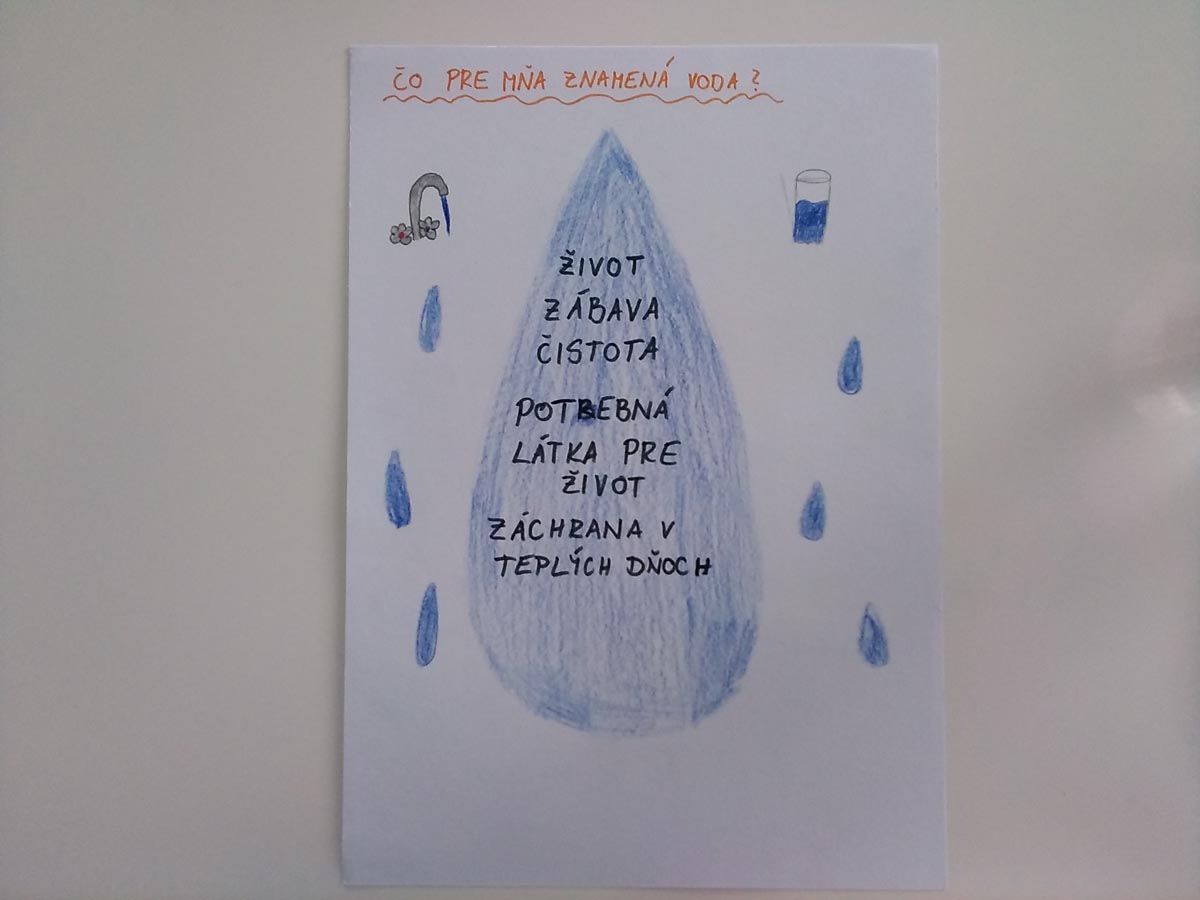 ČO PRE MŇA ZNAMENÁ VODA?
ŽIVOT
ZÁBAVA
ČISTOTA
POTREBNÁ
LÁTKA PRE
ŽIVOT
ZÁCHRANA V
TEPLÝCH DŇOCH